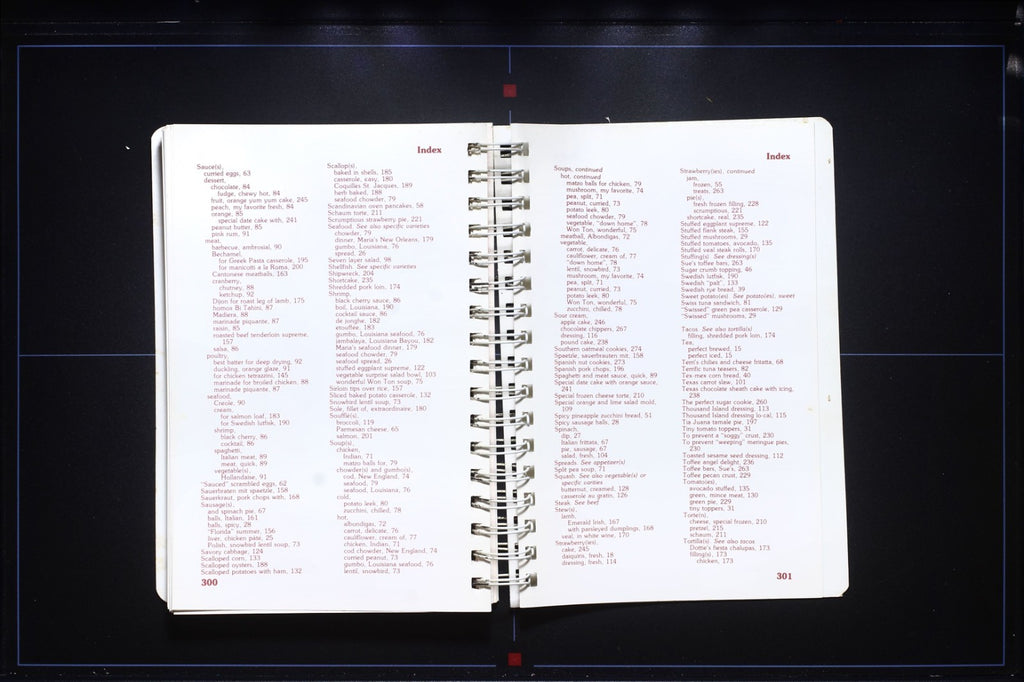 Index
Sauce(s),
curried eggs, 63
dessert,
chocolate, 84
fudge, chewy hot, 84
fruit, orange yum yum cake, 245
peach, my favorite fresh, 84
orange, 85
special date cake with, 241
peanut butter, 85
pink rum, 91
meat,
barbecue, ambrosial, 90
Bechamel,
for Greek Pasta casserole, 195
for manicotti a la Roma, 200
Cantonese meatballs, 163
cranberry,
chutney, 88
ketchup, 92
Dijon for roast leg of lamb, 175
homos Bi Tahini, 87
Madiera, 88
marinade piquante, 87
raisin, 85
roasted beef tenderloin supreme,
157
salsa, 86
poultry,
best batter for deep drying, 92
duckling, orange glaze, 91
for chicken tetrazzini, 145
marinade for broiled chicken, 88
marinade piquante, 87
seafood,
Creole, 90
cream,
for salmon loaf, 183
for Swedish lutfisk, 190
shrimp,
black cherry, 86
cocktail, 86
spaghetti,
Italian meat, 89
meat, quick, 89
vegetable(s),
Hollandaise, 91
"Sauced" scrambled eggs, 62
Sauerbraten mit spaetzle, 158
Sauerkraut, pork chops with, 168
Sausage(s),
and spinach pie, 67
balls, Italian, 161
balls, spicy, 28
"Florida" summer, 156
liver, chicken pate, 25
Polish, snowbird lentil soup, 73
Savory cabbage, 124
Scalloped corn, 133
Scalloped oysters, 188
Scalloped potatoes with ham, 132
300
Scallop(s),
baked in shells, 185
casserole, easy, 180
Coquilles St. Jacques, 189
herb baked, 188
seafood chowder, 79
Scandinavian oven pancakes, 58
Schaum torte, 211
Scrumptious strawberry pie, 221
Seafood. See also specific varieties
chowder, 79
dinner, Maria's New Orleans, 179
gumbo, Louisiana, 76
spread, 26
Seven layer salad, 98
Shellfish. See specific varieties
Shipwreck, 204
Shortcake, 235
Shredded pork loin, 174
Shrimp,
black cherry sauce, 86
boil, Louisiana, 190
cocktail sauce, 86
de jonghe, 182
etouffee, 183
gumbo, Louisiana seafood, 76
jambalaya, Louisiana Bayou, 182
Maria's seafood dinner, 179
seafood chowder, 79
seafood spread, 26
stuffed eggplant supreme, 122
vegetable surprise salad bowl, 103
wonderful Won Ton soup, 75
Sirloin tips over rice, 157
Sliced baked potato casserole, 132
Snowbird lentil soup, 73
Sole, fillet of, extraordinaire, 180
Souffle(s),
broccoli, 119
Parmesan cheese, 65
salmon, 201
Soup(s),
chicken,
Indian, 71
matzo balls for, 79
chowder(s) and gumbo(s),
cod, New England, 74
seafood, 79
seafood, Louisiana, 76
cold,
potato leek, 80
zucchini, chilled, 78
hot,
albondigas, 72
carrot, delicate, 76
cauliflower, cream of, 77
chicken, Indian, 71
cod chowder, New England, 74
curried peanut, 73
gumbo, Louisiana seafood, 76
lentil, snowbird, 73
Index
Soups, continued
hot, continued
matzo balls for chicken, 79
mushroom, my favorite, 74
pea, split, 71
peanut, curried, 73
potato leek, 80
seafood chowder, 79
vegetable "down home", 78
Won Ton, wonderful, 75
meatball, Albondigas, 72
vegetable,
carrot, delicate, 76
cauliflower, cream of, 77
"down home", 78
lentil, snowbird, 73
mushroom, my favorite, 74
pea, split, 71
peanut, curried, 73
potato leek, 80
Won Ton, wonderful, 75
zucchini, chilled, 78
Sour cream,
apple cake, 246
chocolate chippers, 267
dressing, 116
pound cake, 238
Southern oatmeal cookies, 274
Spaetzle, sauerbrauten mit, 158
Spanish nut cookies, 273
Spanish pork chops, 196
Spaghetti and meat sauce, quick, 89
Special date cake with orange sauce,
241
Special frozen cheese torte, 210
Special orange and lime salad mold,
109
Spicy pineapple zucchini bread, 51
Spicy sausage balls, 28
Spinach,
dip, 27
Italian frittata, 67
pie, sausage, 67
salad, fresh, 104
Spreads. See appetizer(s)
Split pea soup, 71
Squash. See also vegetable(s) or
specific varieties
butternut, creamed, 128
casserole au gratin, 126
Steak. See beef
Stew(s),
lamb,
Emerald Irish, 167
with parsleyed dumplings, 168
veal, in white wine, 170
Strawberry(ies),
cake, 245
daiquiris, fresh, 18
dressing, fresh, 114
Strawberry(ies), continued
jam,
frozen, 55
treats, 263
pie(s),
fresh frozen filling, 228
scrumptious, 221
shortcake, real, 235
Stuffed eggplant supreme, 122
Stuffed flank steak, 155
Stuffed mushrooms, 29
Stuffed tomatoes, avocado, 135
Stuffed veal steak rolls, 170
Stuffing(s). See dressing(s)
Sue's toffee bars, 263
Sugar crumb topping, 46
Swedish lutfisk, 190
Swedish "palt", 133
Swedish rye bread, 39
Sweet potato(es). See potato(es), sweet
Swiss tuna sandwich, 81
"Swissed" green pea casserole, 129
"Swissed" mushrooms, 29
Tacos. See also tortilla(s)
filling, shredded pork loin, 174
Tea,
perfect brewed, 15
perfect iced, 15
Terri's chilies and cheese fritatta, 68
Terrific tuna teasers, 82
Tex-mex corn bread, 40
Texas carrot slaw, 101
Texas chocolate sheath cake with icing,
238
The perfect sugar cookie, 260
Thousand Island dressing, 113
Thousand Island dressing lo-cal, 115
Tia Juana tamale pie, 197
Tiny tomato toppers, 31
To prevent a "soggy" crust, 230
To prevent "weeping" meringue pies,
230
Toasted sesame seed dressing, 112
Toffee angel delight, 236
Toffee bars, Sue's, 263
Toffee pecan crust, 229
Tomato(es),
avocado stuffed, 135
green, mince meat, 130
green pie, 229
tiny toppers, 31
Torte(s),
cheese, special frozen, 210
pretzel, 215
schaum, 211
Tortilla(s). See also tacos
Dottie's fiesta chalupas, 173
filling(s), 173
chicken, 173
301